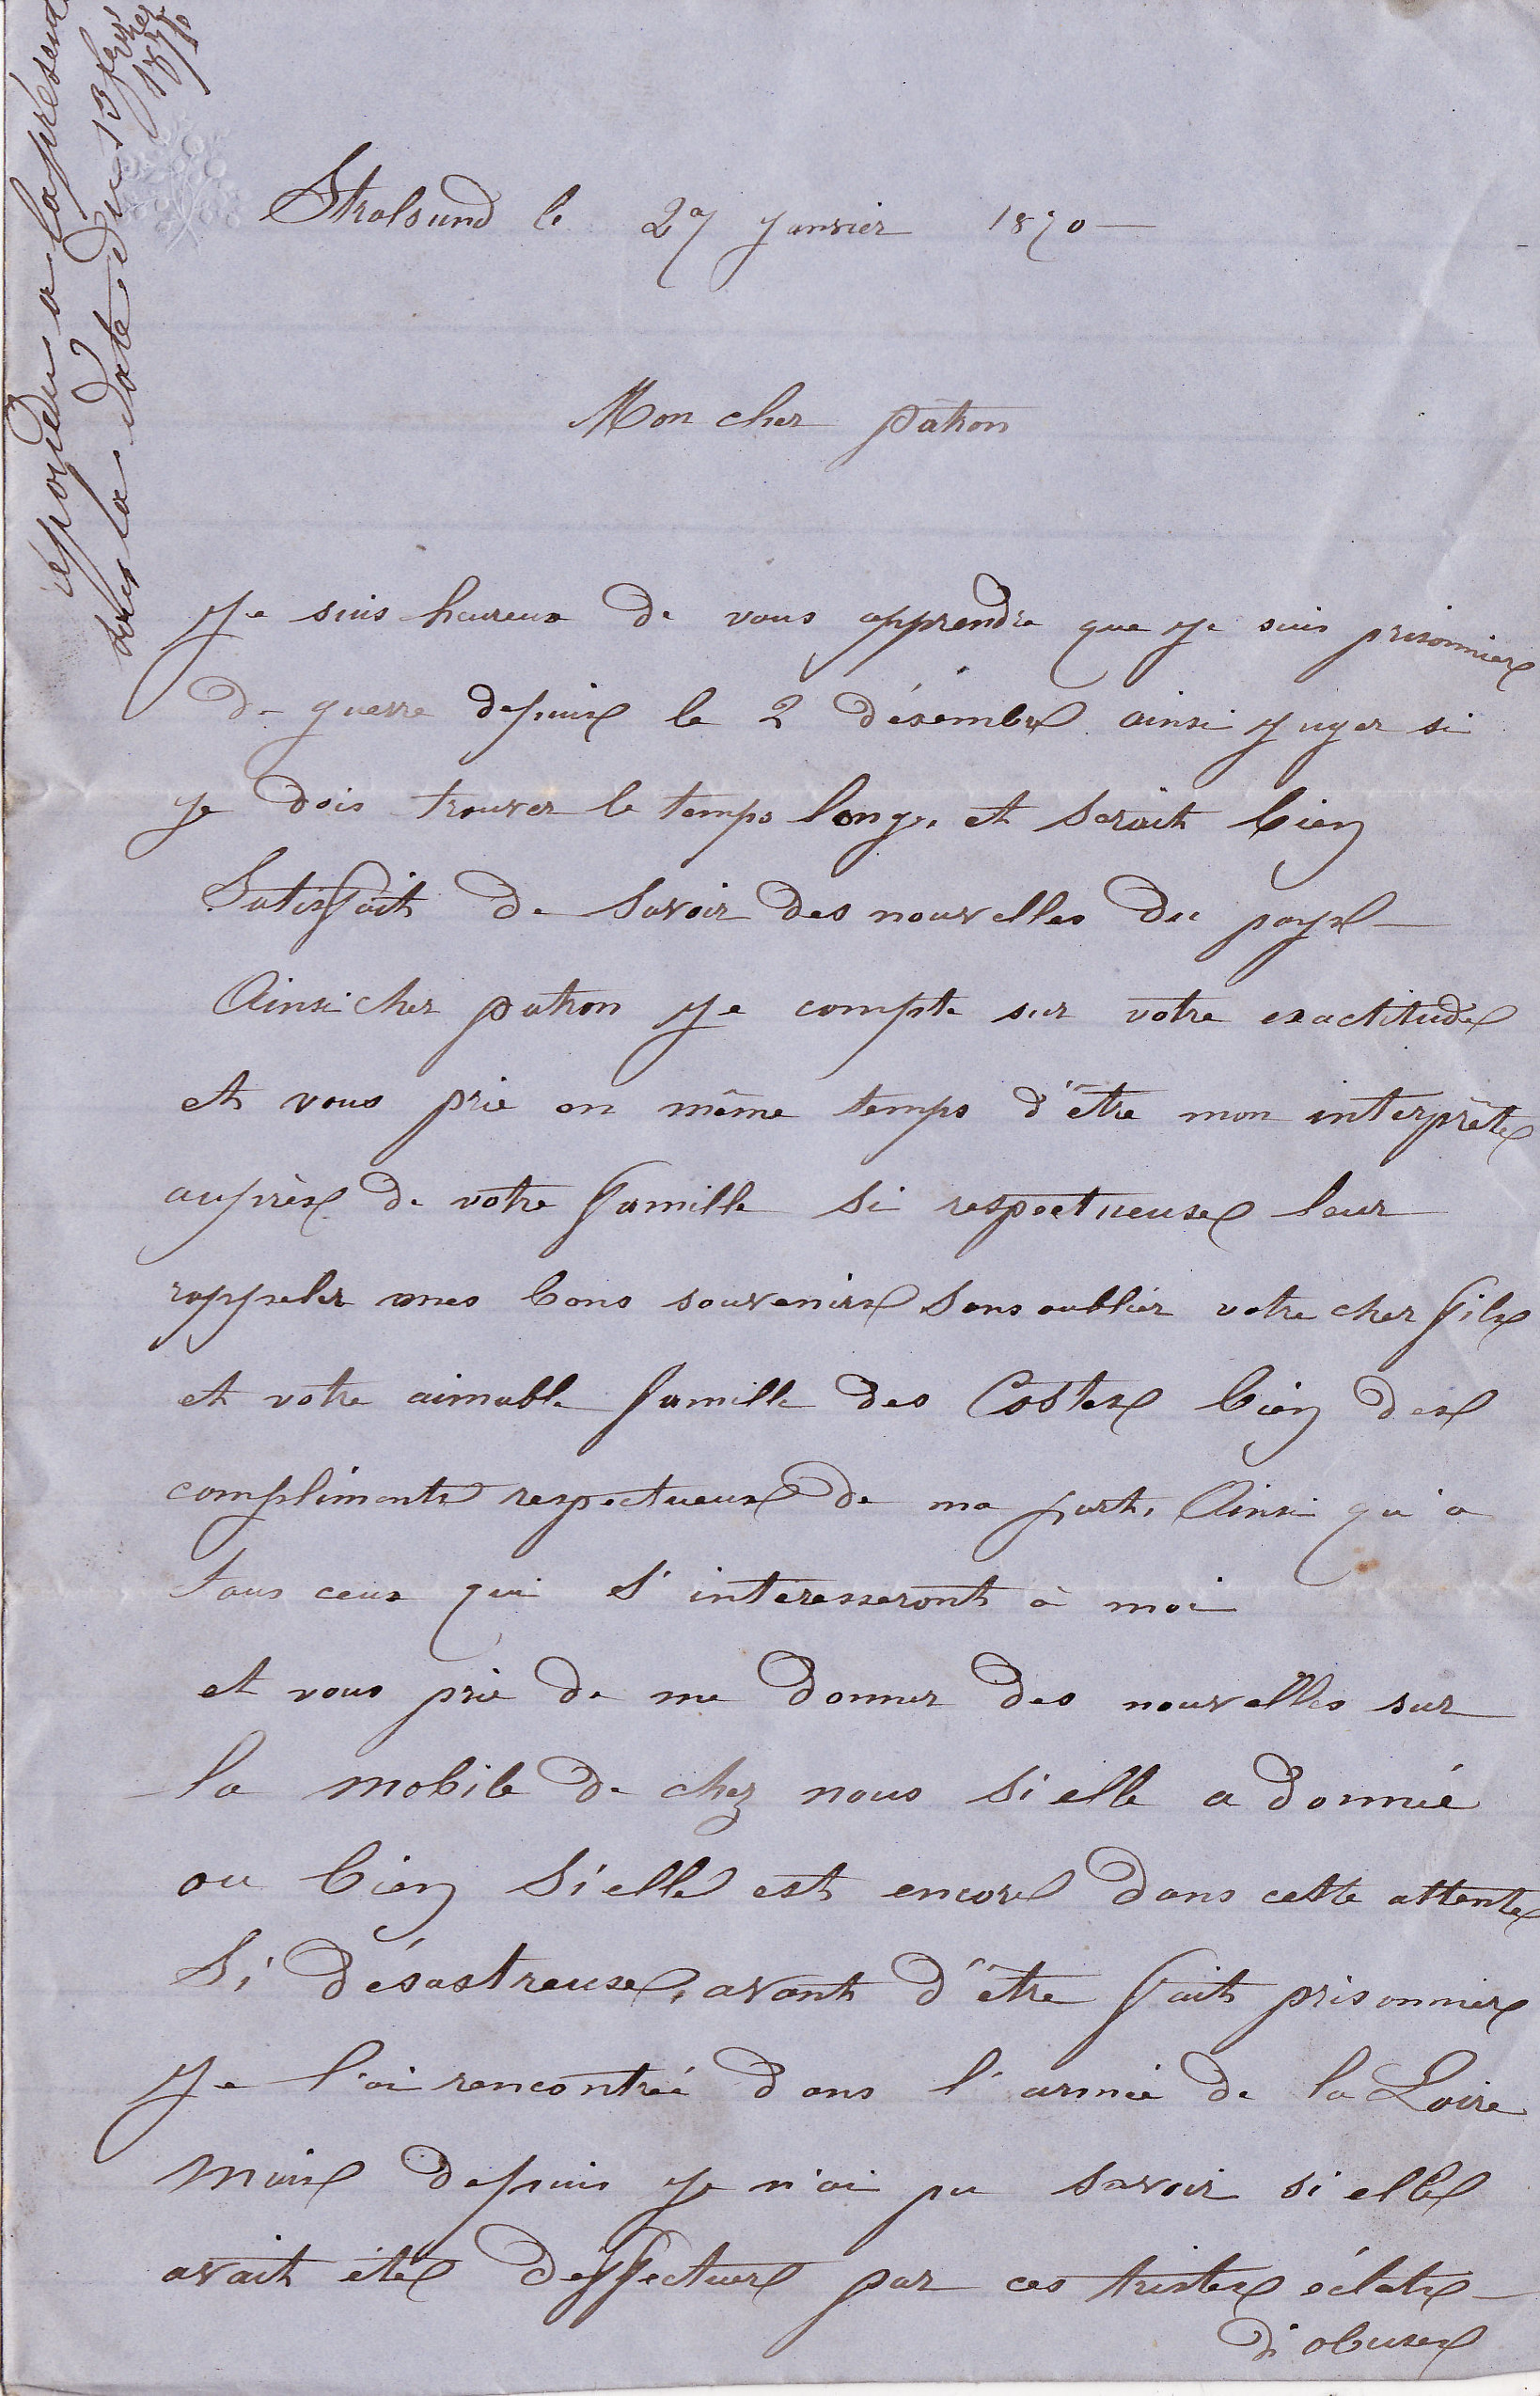 répondu a la présente
sous la date du 13 février
1871
Stralsund le 27 Janvier 1870 —
Mon cher patron
Je suis heureux de vous apprendre que je suis prisonnier
de guerre depuis le 2 désembre ainsi juger si
je dois trouver le temps long, et serait bien
Satisfait de savoir des nouvelles du pays —
Ainsi cher patron je compte sur votre exactitude
et vous prie en même temps d'être mon interprête
auprès de votre famille si respectueuse leur
rappeler mes bons souvenirs sans oublier votre cher fils
et votre aimable famille des Costes bien des
compliments respectueux de ma part, Ainsi qu'a
tous ceux qui s'interesseront à moi
et vous prie de me donner des nouvelles sur
la mobile de chez nous si elle a donnée
ou bien si elle est encore dans cette attente
si désastreuse, avant d'être fait prisonnier
Je l'ai rencontrée dans l'armée de la Loire
mais depuis je n'ai pu savoir si elle
avait étée deffectuer par ces tristes éclats —
d'obuses